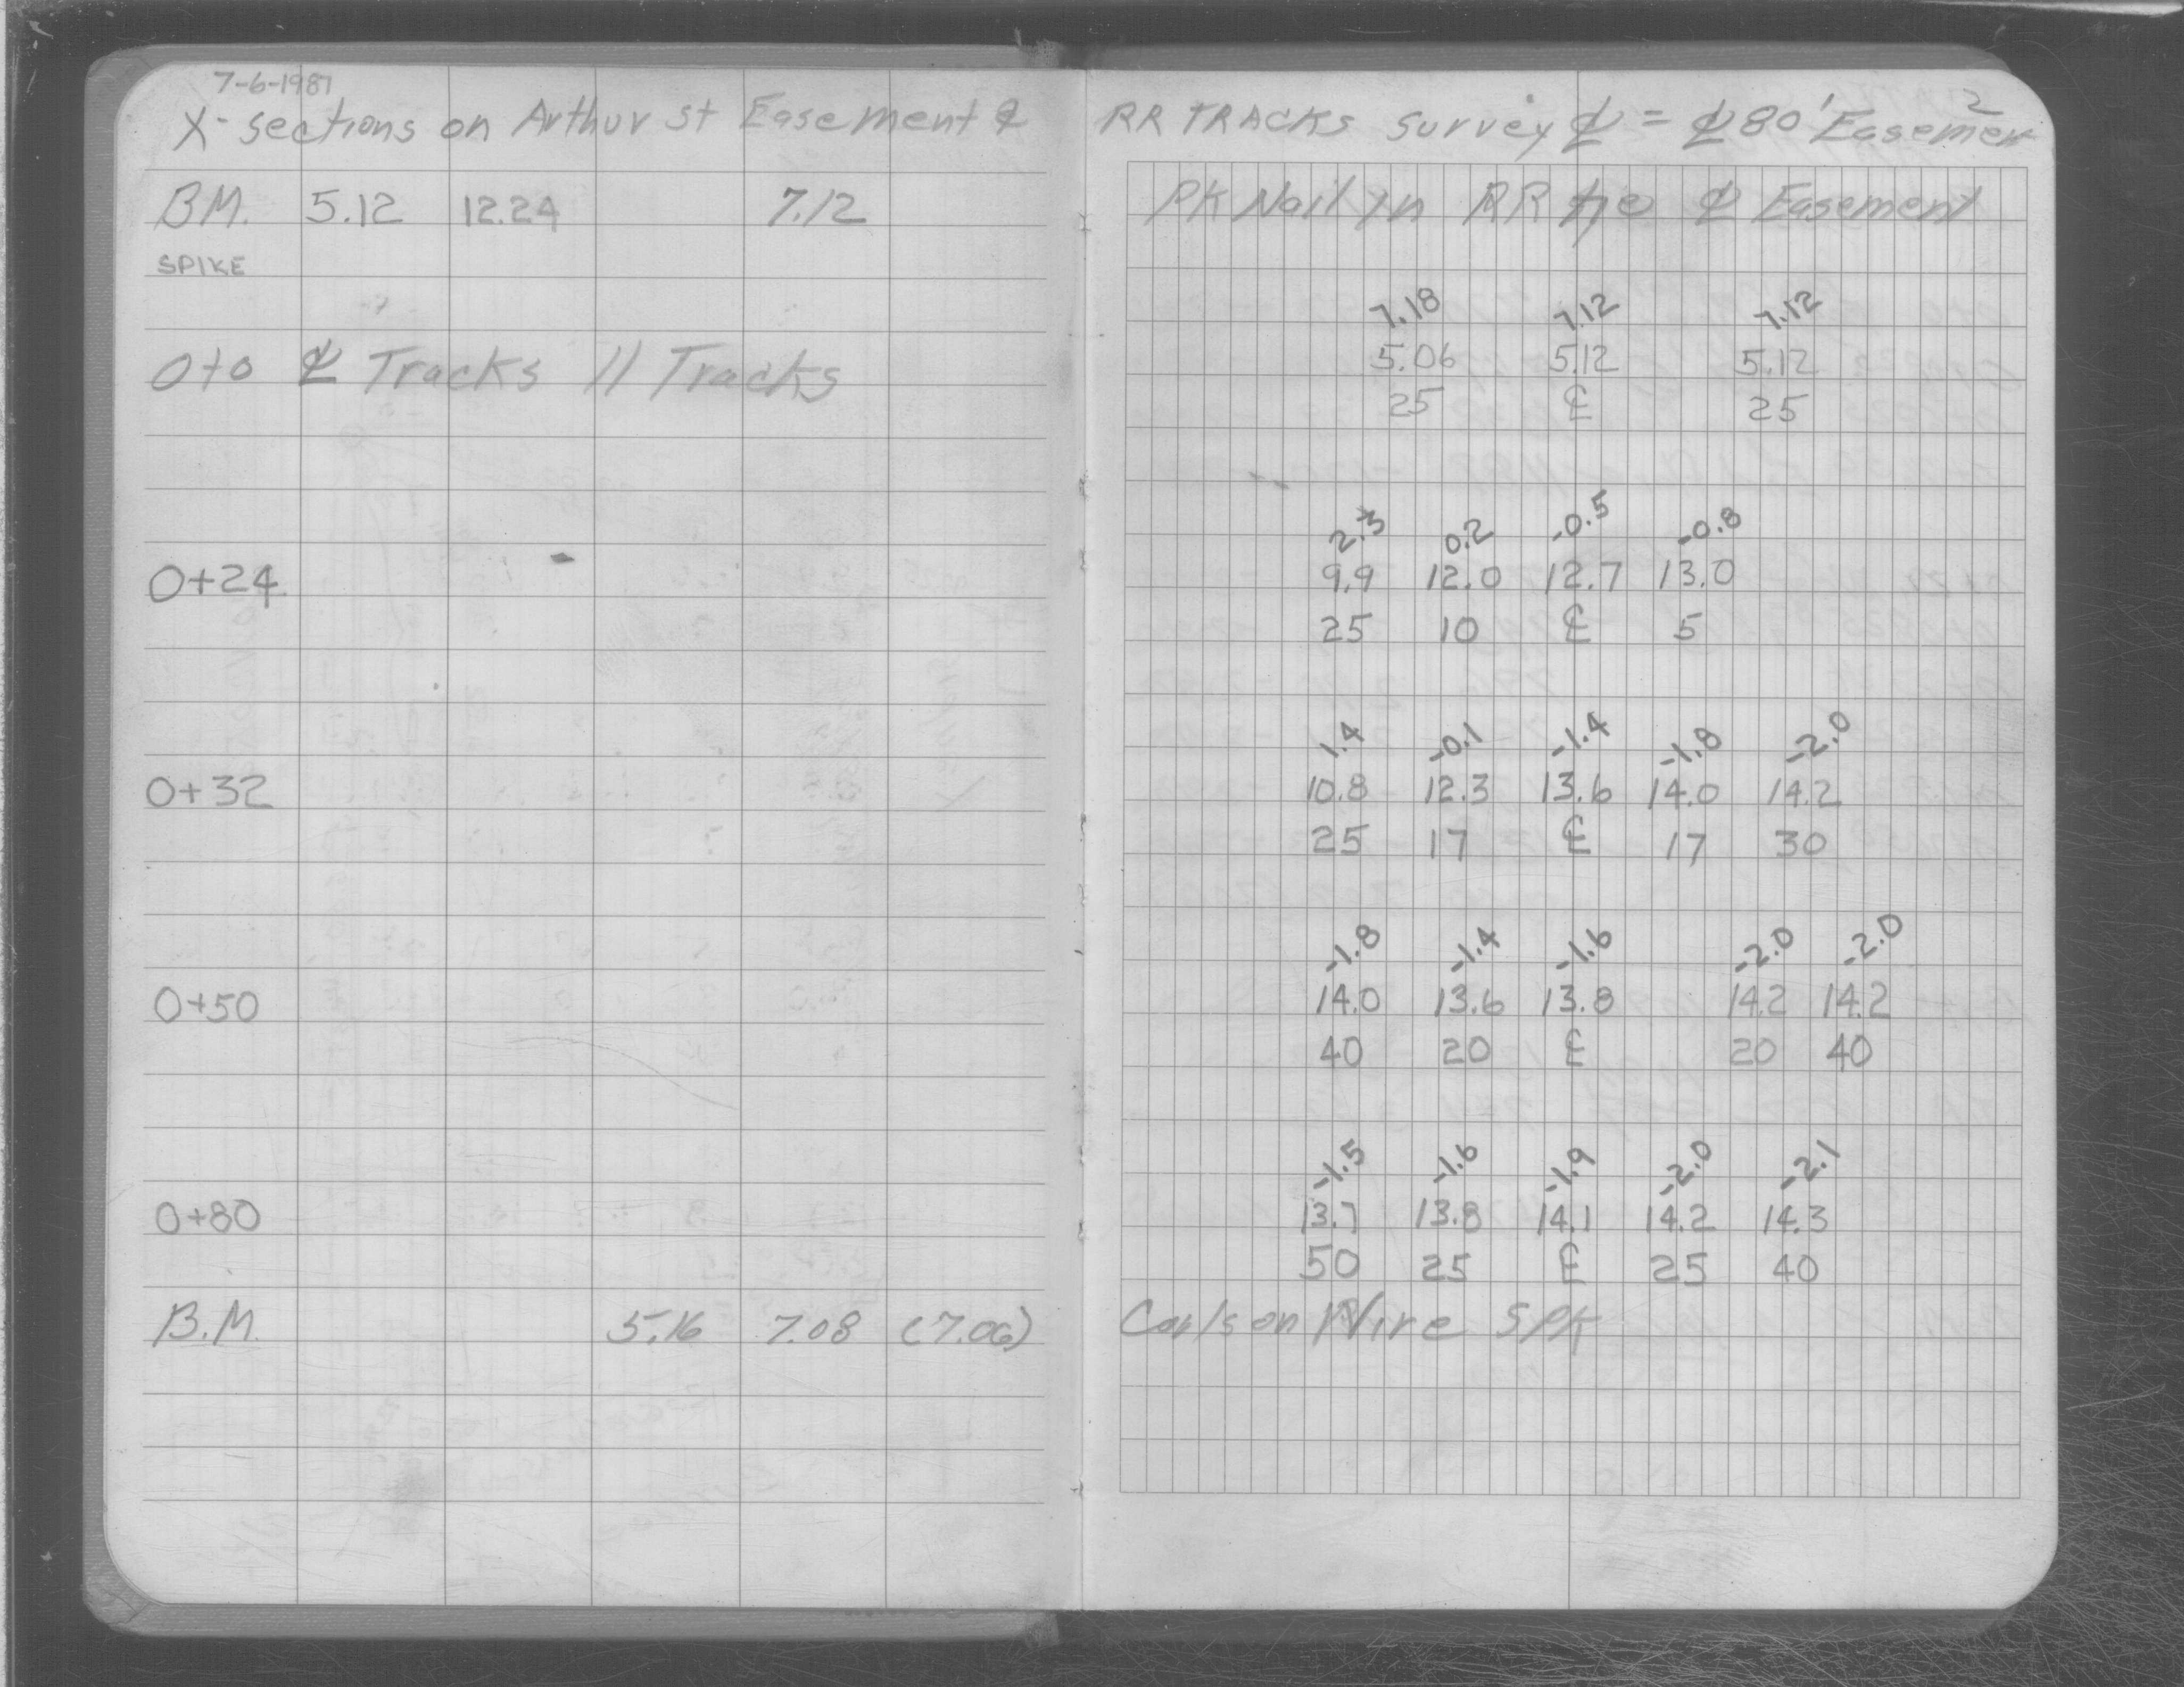 7-6-1987
X-sections on Arthur st Easement ℄
BM. 5.12 12.24 7.12
SPIKE
0+0 ℄ Tracks // Tracks
0+24
0+32
0+50
0+80
B.M. 5.16 7.08 (7.06)
2
RR TRACKS Survey ℄ = ℄ 80' Easemen
PK Nail in RR tie ℄ Easement
7.18 7.12 7.12
5.06 5.12 5.12
25 ℄ 25
2.3 0.2 -0.5 -0.8
9.9 12.0 12.7 13.0
25 10 ℄ 5
1.4 -0.1 -1.4 -1.8 -2.0
10.8 12.3 13.6 14.0 14.2
25 17 ℄ 17 30
-1.8 -1.4 -1.6 -2.0 -2.0
14.0 13.6 13.8 14.2 14.2
40 20 ℄ 20 40
-1.5 -1.6 -1.9 -2.0 -2.1
13.7 13.8 14.1 14.2 14.3
50 25 ℄ 25 40
Carlson Wire SPK